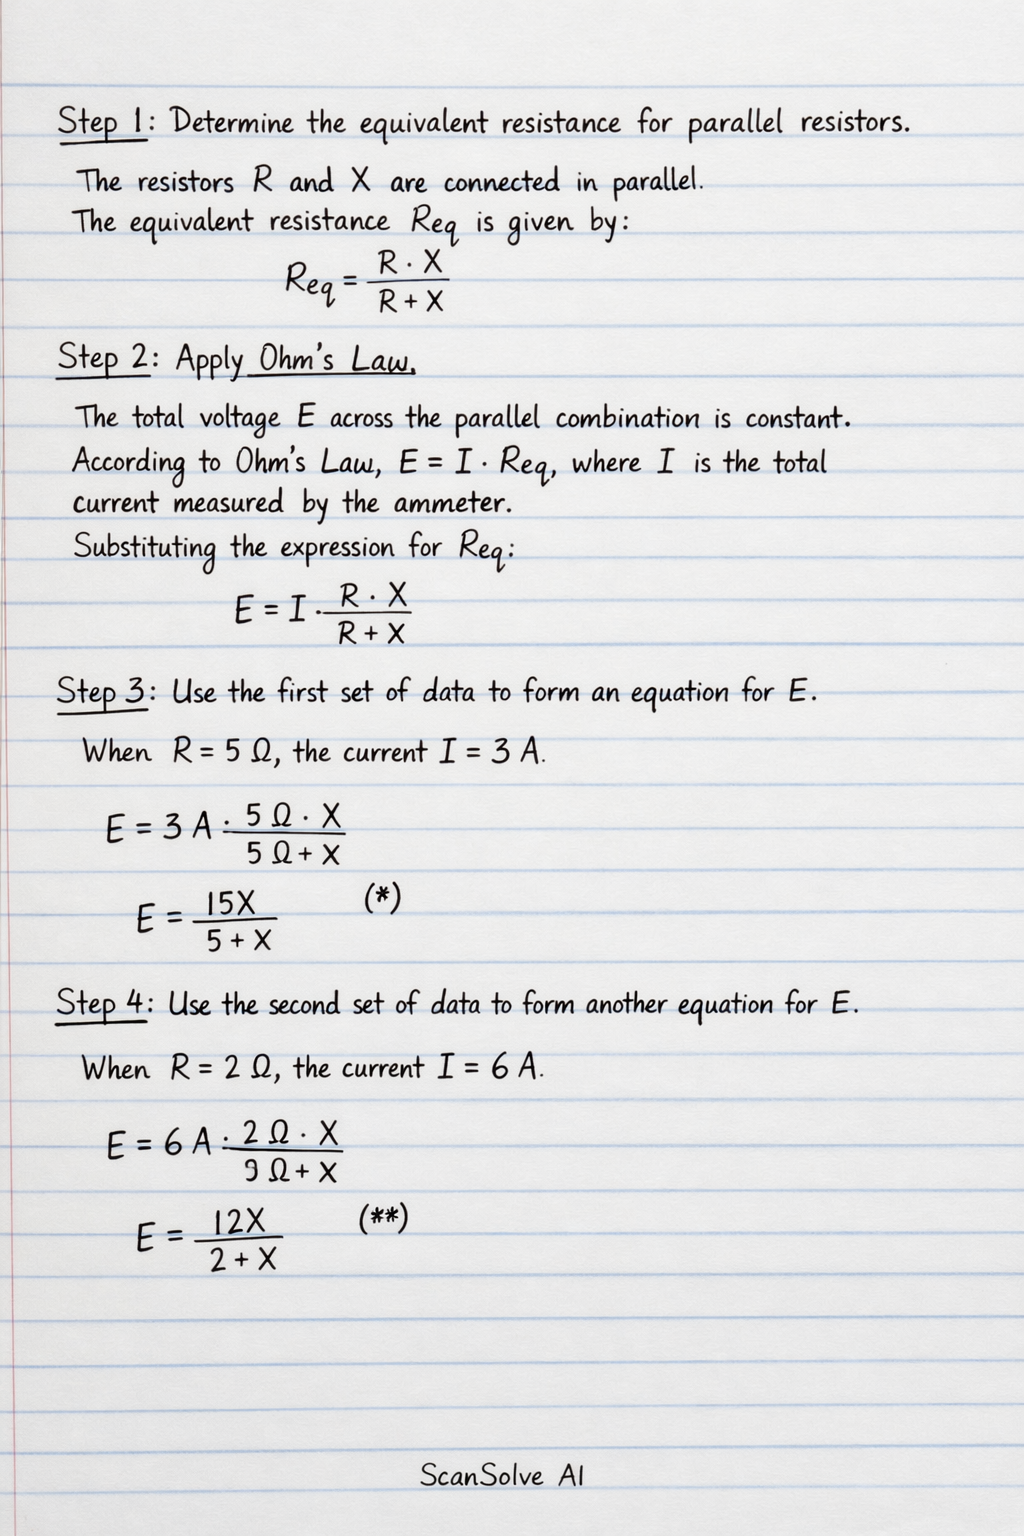 Step 1: Determine the equivalent resistance for parallel resistors.
The resistors R and X are connected in parallel.
The equivalent resistance Req is given by:
Req = R · X / R + X
Step 2: Apply Ohm's Law.
The total voltage E across the parallel combination is constant.
According to Ohm's Law, E = I · Req, where I is the total
current measured by the ammeter.
Substituting the expression for Req:
E = I · R · X / R + X
Step 3: Use the first set of data to form an equation for E.
When R = 5 Ω, the current I = 3 A.
E = 3 A · 5 Ω · X / 5 Ω + X
E = 15X / 5 + X (*)
Step 4: Use the second set of data to form another equation for E.
When R = 2 Ω, the current I = 6 A.
E = 6 A · 2 Ω · X / 9 Ω + X
E = 12X / 2 + X (**)
ScanSolve AI